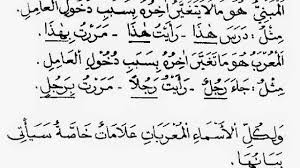 اَلْمَبْنِيُّ هُوَ مَالَا يَتَغَيَّرُ اٰخِرُهُ بِسَبَبِ دُخُوْلِ الْعَامِلِ.
مِثْلُ : دَرَسَ هٰذَا - رَاَيْتُ هٰذَا - مَرَرْتُ بِهٰذَا.
اَلْمُعْرَبُ هُوَ مَا تَغَيَّرَ اٰخِرُهُ بِسَبَبِ دُخُوْلِ الْعَامِلِ.
مِثْلُ : جَاءَ رَجُلٌ - رَاَيْتُ رَجُلًا - مَرَرْتُ بِرَجُلٍ.
وَلِكُلِّ الْاَسْمَاءِ الْمُعْرَبَاتِ عَلَامَاتٌ خَاصَّةٌ سَيَأْتِى
بَيَانُهَا.